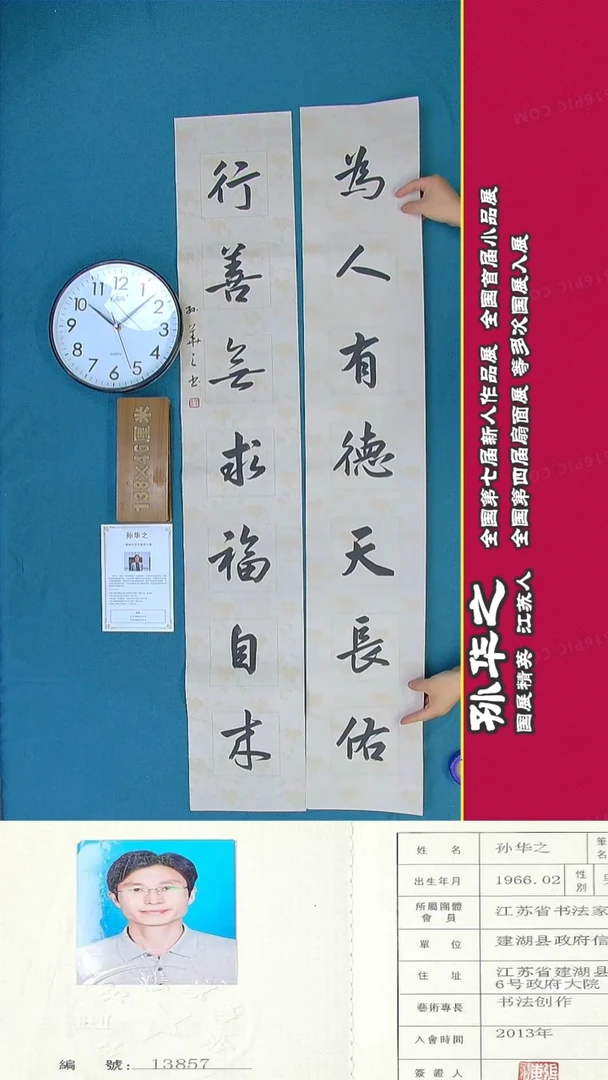 為人有德天長佑
行善無求福自来
孙華之书
12
1
2
3
4
5
6
7
8
9
10
11
138×46厘米
孙华之
孙华之
国展精英 江苏人
全国第七届新人作品展 全国首届小品展
全国第四届扇面展 等多次国展入展
编 號: 13857
姓 名 孙华之 筆名
出生年月 1966.02 性別
所屬團體會員 江苏省书法家
單 位 建湖县政府信
住 址 江苏省建湖县
6号政府大院
藝術專長 书法创作
入會時間 2013年
簽證人